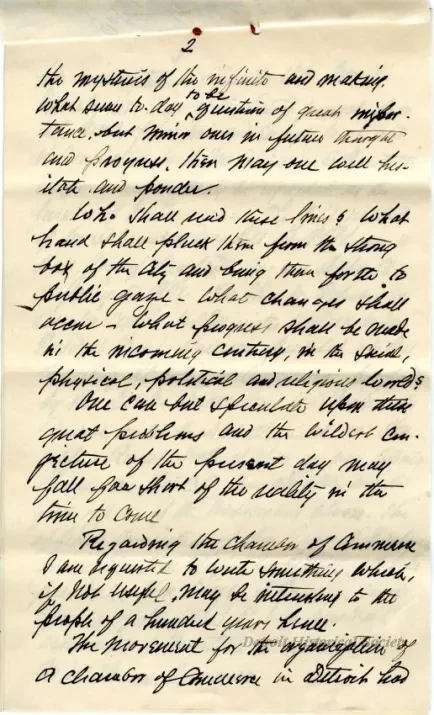 2
the mysteries of the infinite and making
what seem to-day to be question of great impor-
tance, but minor ones in future thought
and progress. then may one well hes-
itate and ponder.
Who shall read these lines? What
hand shall pluck them from the strong
box of the City and bring them forth to
public gaze - What changes shall
occur - What progress shall be made
in the incoming century, in the social,
physical, political and religious world?
One can but speculate upon these
great problems and the wildest con-
jecture of the present day may
fall far short of the reality in the
time to come
Regarding the Chamber of Commerce
I am requested to write something which,
if not useful, may be interesting to the
people of a hundred years hence.
The movement for the organization of
a Chamber of Commerce in Detroit had
Detroit Historical Society